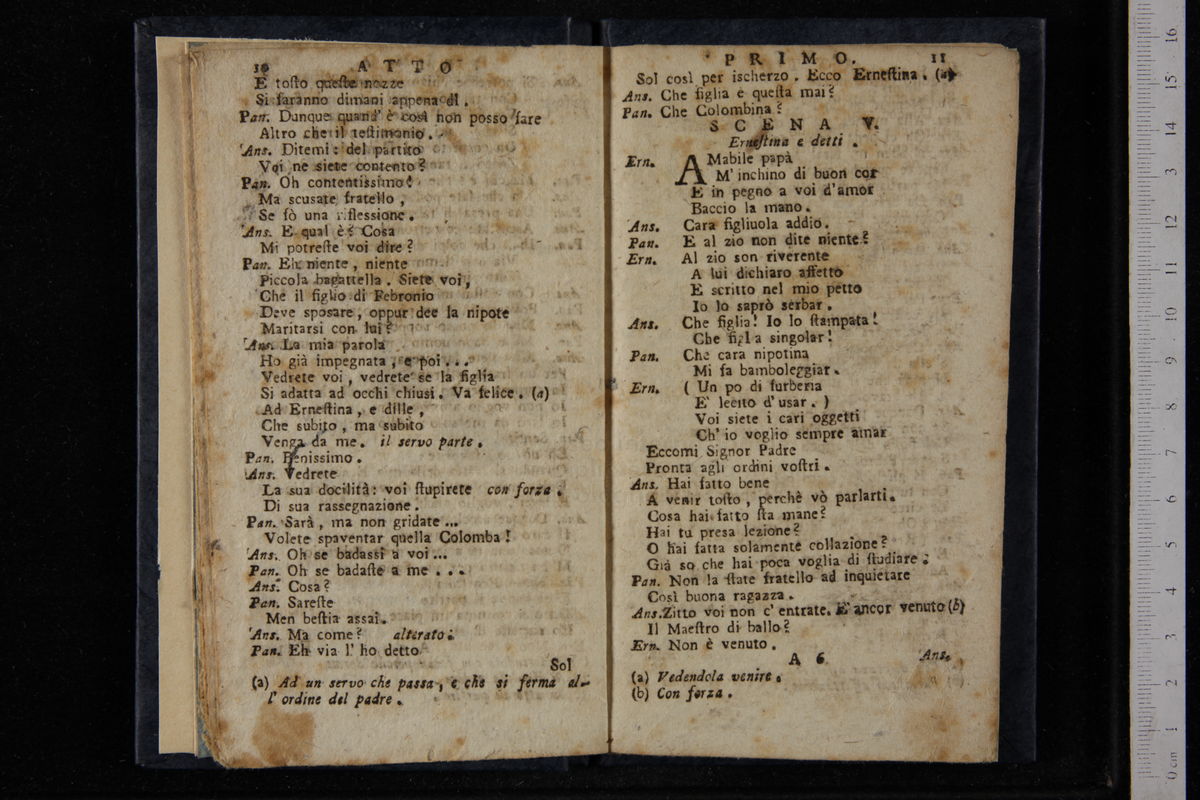 10 ATTO
E toſto queſte nozze
Si faranno dimani appena dì.
Pan. Dunque quand' è così non posso fare
Altro che il teſtimonio.
Ans. Ditemi: del partito
Voi ne siete contento?
Pan. Oh contentissimo!
Ma scusate fratello,
Se fò una riflessione.
Ans. E qual è? Cosa
Mi potreſte voi dire?
Pan. Eh niente, niente
Piccola bagattella. Siete voi,
Che il figlio di Febronio
Deve sposare, oppur dee la nipote
Maritarsi con lui?
Ans. La mia parola
Ho già impegnata, e poi...
Vedrete voi, vedrete se la figlia
Si adatta ad occhi chiusi. Va felice. (a)
Ad Erneſtina, e dille,
Che subito, ma subito
Venga da me. il servo parte.
Pan. Benissimo.
Ans. Vedrete
La sua docilità: voi ſtupirete con forza.
Di sua rassegnazione.
Pan. Sarà, ma non gridate...
Volete spaventar quella Colomba!
Ans. Oh se badassi a voi...
Pan. Oh se badaſte a me...
Ans. Cosa?
Pan. Sareſte
Men beſtia assai.
Ans. Ma come? alterato.
Pan. Eh via l' ho detto
Sol
(a) Ad un servo che passa, e che si ferma al-
l' ordine del padre.
PRIMO. 11
Sol così per ischerzo. Ecco Erneſtina. (a)
Ans. Che figlia è queſta mai?
Pan. Che Colombina?
SCENA V.
Erneſtina e detti.
Ern. AMabile papà
M' inchino di buon cor
E in pegno a voi d'amor
Baccio la mano.
Ans. Cara figliuola addio.
Pan. E al zio non dite niente?
Ern. Al zio son riverente
A lui dichiaro affetto
E scritto nel mio petto
Io lo saprò serbar.
Ans. Che figlia! Io lo ſtampata!
Che figl a singolar!
Pan. Che cara nipotina
Mi fa bamboleggiar.
Ern. (Un po di furberia
E' lecito d' usar.)
Voi siete i cari oggetti
Ch' io voglio sempre amar
Eccomi Signor Padre
Pronta agli ordini voſtri.
Ans. Hai fatto bene
A venir toſto, perchè vò parlarti.
Cosa hai fatto ſta mane?
Hai tu presa lezione?
O hai fatta solamente collazione?
Già so che hai poca voglia di ſtudiare.
Pan. Non la ſtate fratello ad inquietare
Così buona ragazza.
Ans. Zitto voi non c' entrate. E' ancor venuto (b)
Il Maeſtro di ballo?
Ern. Non è venuto.
A 6 Ans.
(a) Vedendola venire.
(b) Con forza.
16
15
14
13
12
11
10
9
8
7
6
5
4
3
2
1
0 cm